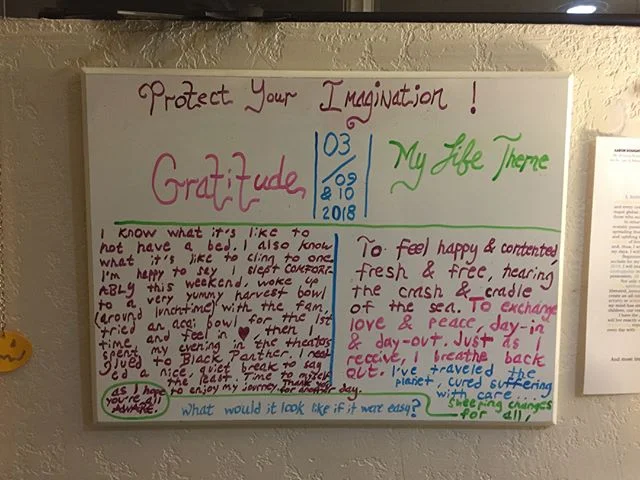 Protect Your Imagination !
Gratitude
03
/09
& 10
2018
My Life Theme
I know what it's like to
not have a bed. I also know
what it's like to cling to one.
I'm happy to say I slept COMFORT-
ABLY this weekend, woke up
to a very yummy harvest bowl
(around lunchtime) with the fam,
tried an acai bowl for the 1st
time, and fell in ♥ then I
spent my evening in the theators
glued to Black Panther. I need
ed a nice, quiet break to say
the least. Time to myself
to enjoy my journey. Thank you
for another day.
as I hope
you're all
AWARE.
To feel happy & contented,
fresh & free, hearing
the crash & cradle
of the sea. To exchange
love & peace, day-in
& day-out. Just as I
receive, I breathe back
out. I've traveled the
planet, cured suffering
with care...
sweeping changes
for all.
what would it look like if it were easy?